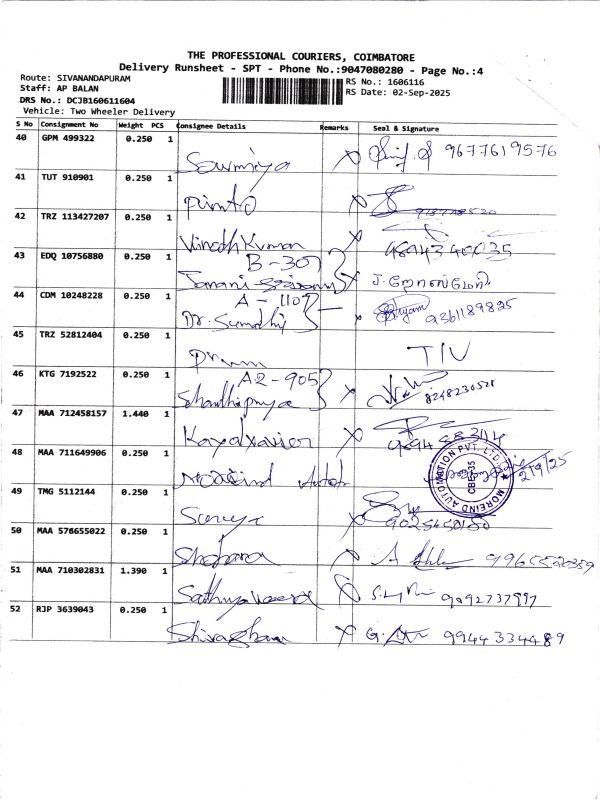 THE PROFESSIONAL COURIERS, COIMBATORE
Delivery Runsheet - SPT - Phone No.:9047080280 - Page No.:4
Route: SIVANANDAPURAM
RS No.: 1606116
Staff: AP BALAN
RS Date: 02-Sep-2025
DRS No.: DCJB160611604
Vehicle: Two Wheeler Delivery
S No Consignment No Weight PCS Consignee Details Remarks Seal & Signature
40 GPM 499322 0.250 1
Sowmiya 9677619576
41 TUT 910901 0.250 1
Pinto
42 TRZ 113427207 0.250 1
Vinoth Kumar 9894340035
43 EDQ 10756880 0.250 1 B-307
Janani
44 CDM 10248228 0.250 1 A-1107
Dr. Sumathi 9361189825
45 TRZ 52812404 0.250 1
TIV
46 KTG 7192522 0.250 1 A2-905
Shanthipriya 8248230521
47 MAA 712458157 1.440 1
Kayalxavier
48 MAA 711649906 0.250 1
Moreind Autom 2/9/25
MOREIND AUTOMATION PVT. LTD.
CBE-35
49 TMG 5112144 0.250 1
Surya
50 MAA 576655022 0.250 1
Shobana
51 MAA 710302831 1.390 1
9092737997
52 RJP 3639043 0.250 1
9944334489